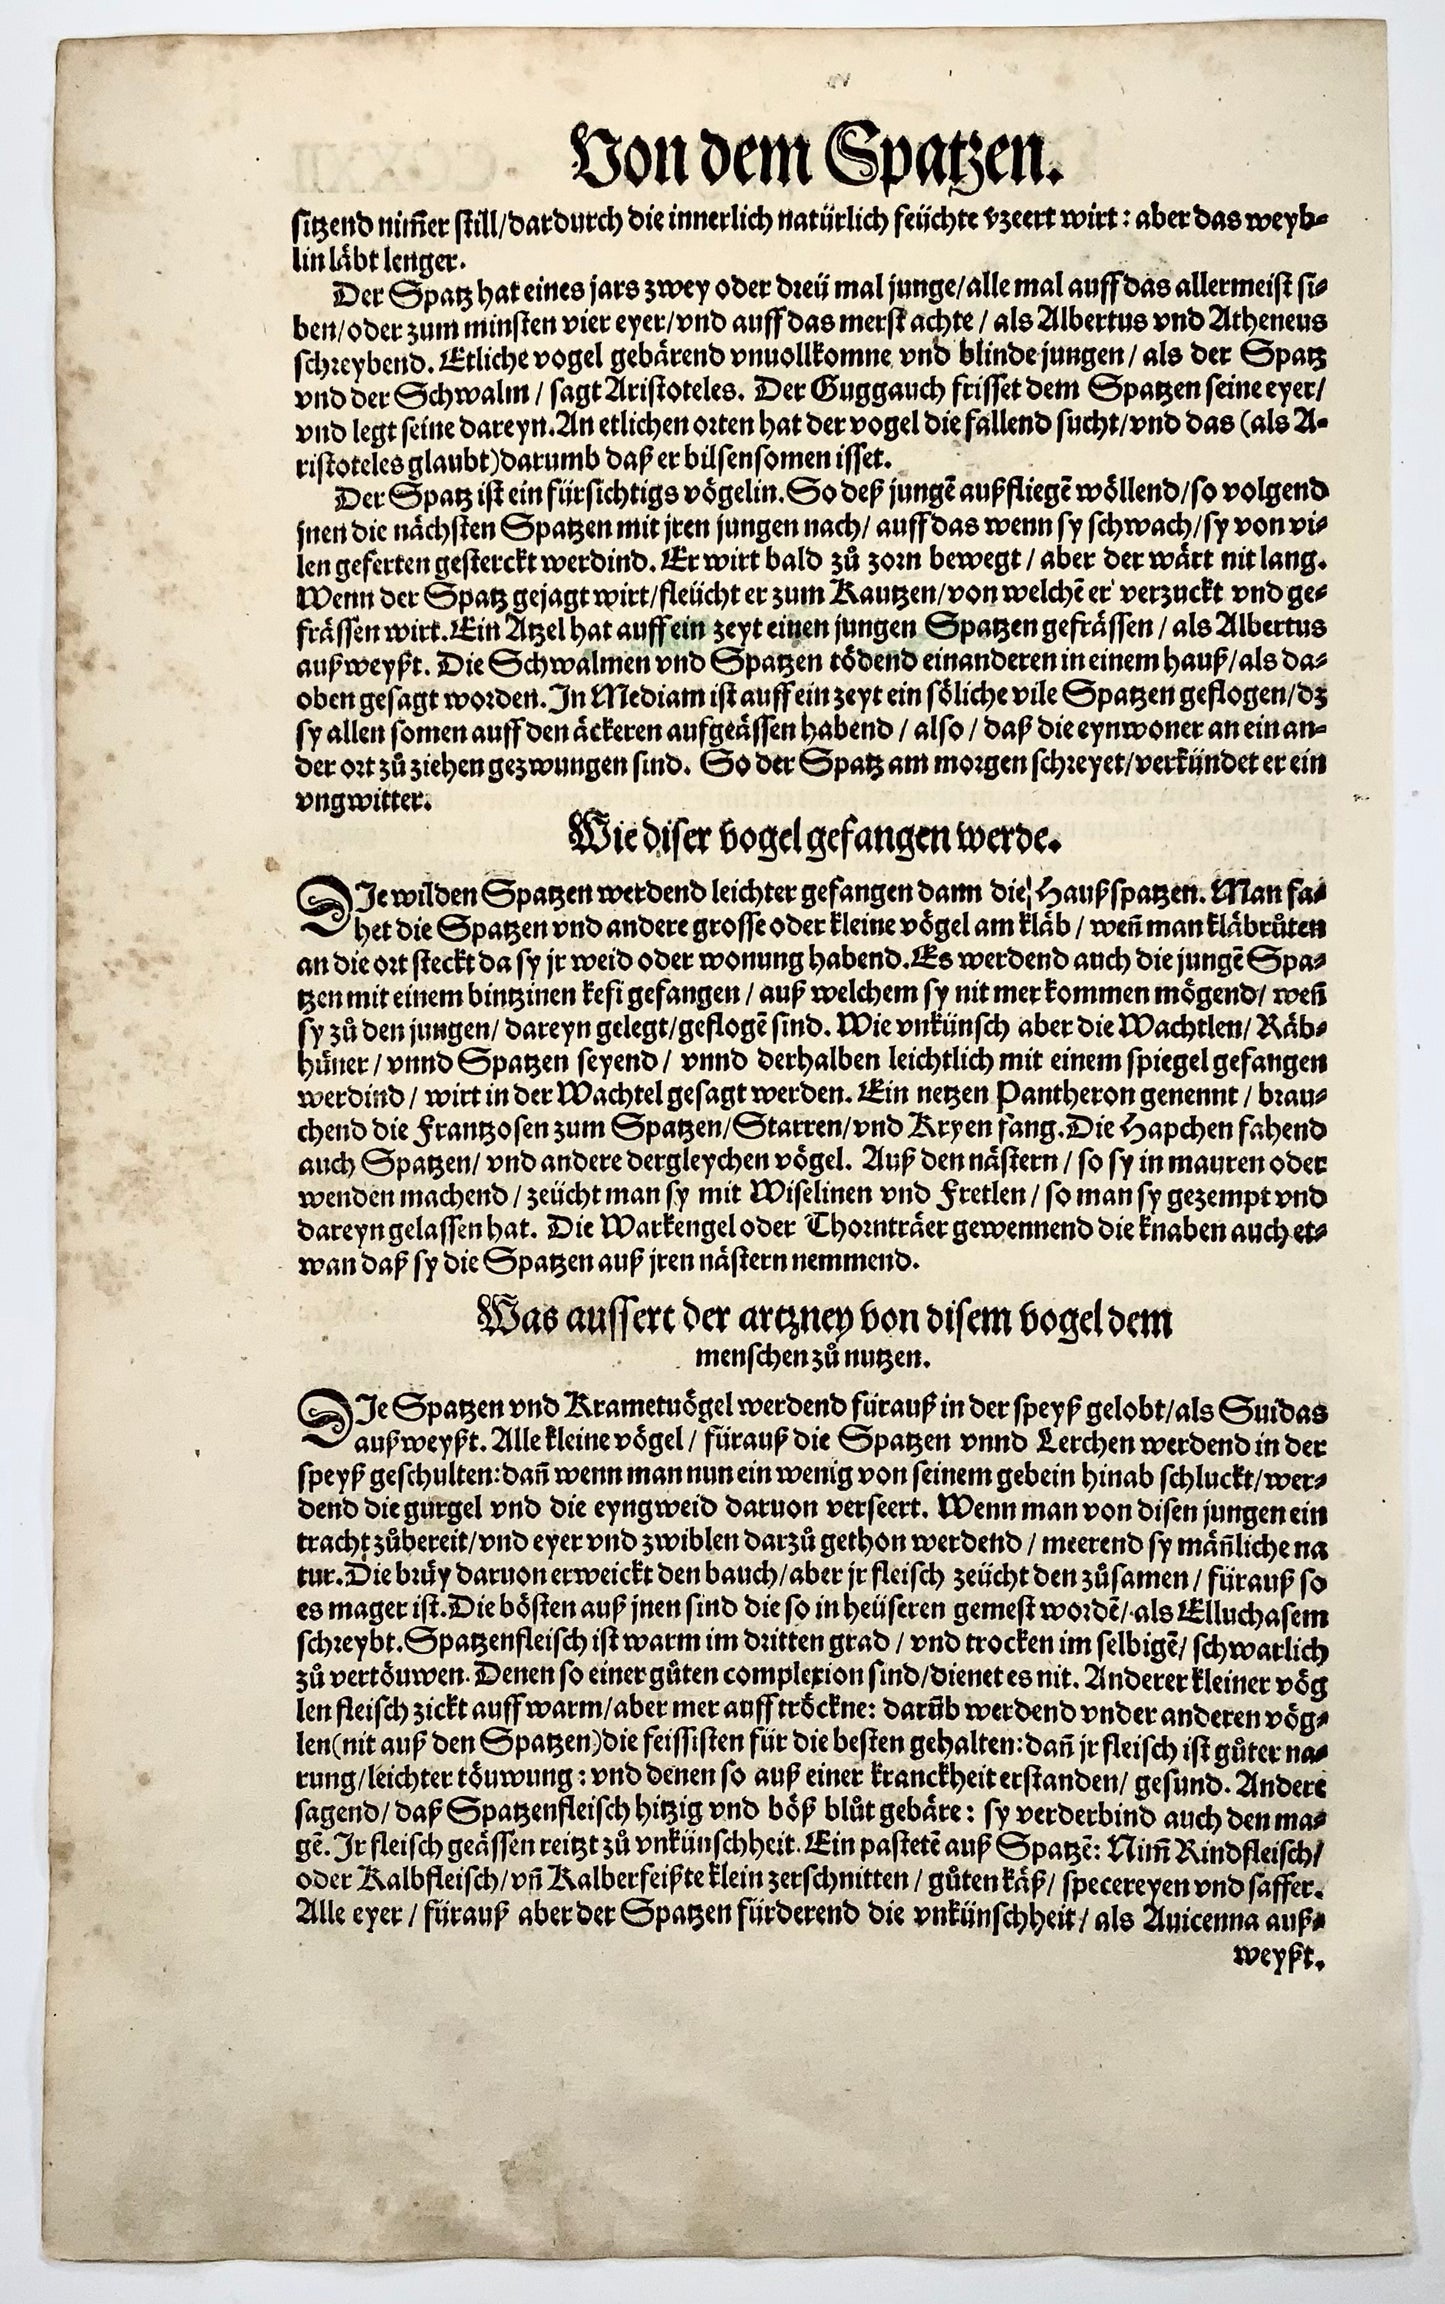 Von dem Spatzen.
sitzend nim̃er still/dardurch die innerlich natürlich feüchte v̄zeert wirt: aber das weyb⸗
lin läbt lenger.
Der Spatz hat eines jars zwey oder dreü mal junge/alle mal auff das allermeist si⸗
ben/oder zum minsten vier eyer/vnd auff das merst achte / als Albertus vnd Atheneus
schreybend. Etliche vogel gebärend vnuollkomne vnd blinde jungen / als der Spatz
vnd der Schwalm / sagt Aristoteles. Der Guggauch frisset dem Spatzen seine eyer/
vnd legt seine dareyn. An etlichen orten hat der vogel die fallend sucht/vnd das (als A⸗
ristoteles glaubt) darumb daß er bilsensomen isset.
Der Spatz ist ein fürsichtigs vögelin. So deß jungẽ außfliegẽ wöllend/so volgend
jnen die nächsten Spatzen mit jren jungen nach/ auff das wenn sy schwach/sy von vi⸗
len geferten gesterckt werdind. Er wirt bald zů zorn bewegt / aber der wärt nit lang.
Wenn der Spatz gejagt wirt/fleücht er zum Kautzen/von welchẽ er verzuckt vnd ge⸗
frässen wirt. Ein Atzel hat auff ein zeyt einen jungen Spatzen gefrässen / als Albertus
außweyßt. Die Schwalmen vnd Spatzen tödend einanderen in einem hauß/als da⸗
oben gesagt worden. In Mediam ist auff ein zeyt ein söliche vile Spatzen geflogen/dz
sy allen somen auff den äckeren aufgeässen habend / also / daß die eynwoner an ein an⸗
der ort zů ziehen gezwungen sind. So der Spatz am morgen schreyet/verkündet er ein
vngwitter.
Wie diser vogel gefangen werde.
DIe wilden Spatzen werdend leichter gefangen dann die Haußspatzen. Man fa⸗
het die Spatzen vnd andere grosse oder kleine vögel am kläb / weñ man kläbrůten
an die ort steckt da sy jr weid oder wonung habend. Es werdend auch die jungẽ Spa⸗
tzen mit einem bintzinen kefi gefangen / auß welchem sy nit mer kommen mögend/ weñ
sy zů den jungen/ dareyn gelegt/geflogẽ sind. Wie vnkünsch aber die Wachtlen/ Räb⸗
hüner / vnnd Spatzen seyend/ vnnd derhalben leichtlich mit einem spiegel gefangen
werdind / wirt in der Wachtel gesagt werden. Ein netzen Pantheron genennt / brau⸗
chend die Frantzosen zum Spatzen/Starren/vnd Kryen fang. Die Hapchen fahend
auch Spatzen/ vnd andere dergleychen vögel. Auß den nästern / so sy in mauren oder
wenden machend / zeücht man sy mit Wiselinen vnd Fretlen / so man sy gezempt vnd
dareyn gelassen hat. Die Warkengel oder Thornträer gewennend die knaben auch et⸗
wan daß sy die Spatzen auß jren nästern nemmend.
Was aussert der artzney von disem vogel dem
menschen zů nutzen.
DIe Spatzen vnd Krametuögel werdend fürauß in der speyß gelobt/als Suidas
außweyßt. Alle kleine vögel / fürauß die Spatzen vnnd Lerchen werdend in der
speyß geschulten: dañ wenn man nun ein wenig von seinem gebein hinab schluckt/wer⸗
dend die gurgel vnd die eyngweid daruon verseert. Wenn man von disen jungen ein
tracht zůbereit/vnd eyer vnd zwiblen darzů gethon werdend / meerend sy mäñliche na
tur. Die brüy daruon erweickt den bauch/aber jr fleisch zeücht den zůsamen / fürauß so
es mager ist. Die bösten auß jnen sind die so in heüseren gemest wordẽ/ als Elluchasem
schreybt. Spatzenfleisch ist warm im dritten grad / vnd trocken im selbigẽ/ schwarlich
zů vertöuwen. Denen so einer gůten complexion sind/dienet es nit. Anderer kleiner vög
len fleisch zickt auff warm/aber mer auff tröckne: darũb werdend vnder anderen vög⸗
len(nit auß den Spatzen)die feissisten für die besten gehalten: dañ jr fleisch ist gůter na⸗
rung/leichter töuwung: vnd denen so auß einer kranckheit erstanden/ gesund. Andere
sagend/ daß Spatzenfleisch hitzig vnd böß blůt gebäre: sy verderbind auch den ma⸗
gẽ. Ir fleisch geässen reitzt zů vnkünschheit. Ein pastetẽ auß Spatzẽ: Nim̃ Rindfleisch/
oder Kalbfleisch/vñ Kalberfeißte klein zerschnitten / gůten käß/ specereyen vnd saffer.
Alle eyer / fürauß aber der Spatzen fürderend die vnkünschheit/ als Auicenna auß⸗
weyßt.